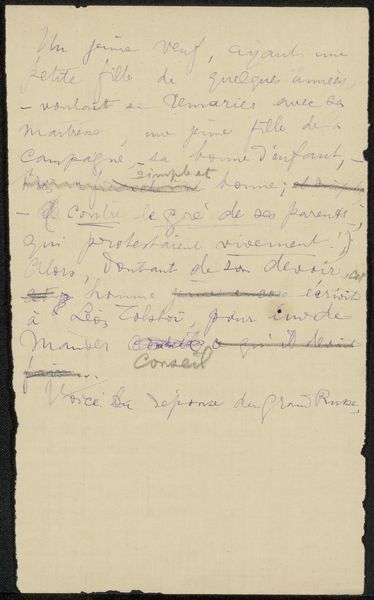 Un jeune veuf, ayant une
petite fille de quelques années,
– voulant se remarier avec sa
maitresse, une jeune fille de la
campagne, – sa bonne d'enfant, –
simple et
bonne;
– (contre le gré de ses parents,
qui protestaient vivement!)
Alors, doutant de son devoir, cet
homme écrivit
à Léon Tolstoï, pour lui de
mander
conseil
Voici la réponse du grand Russe,